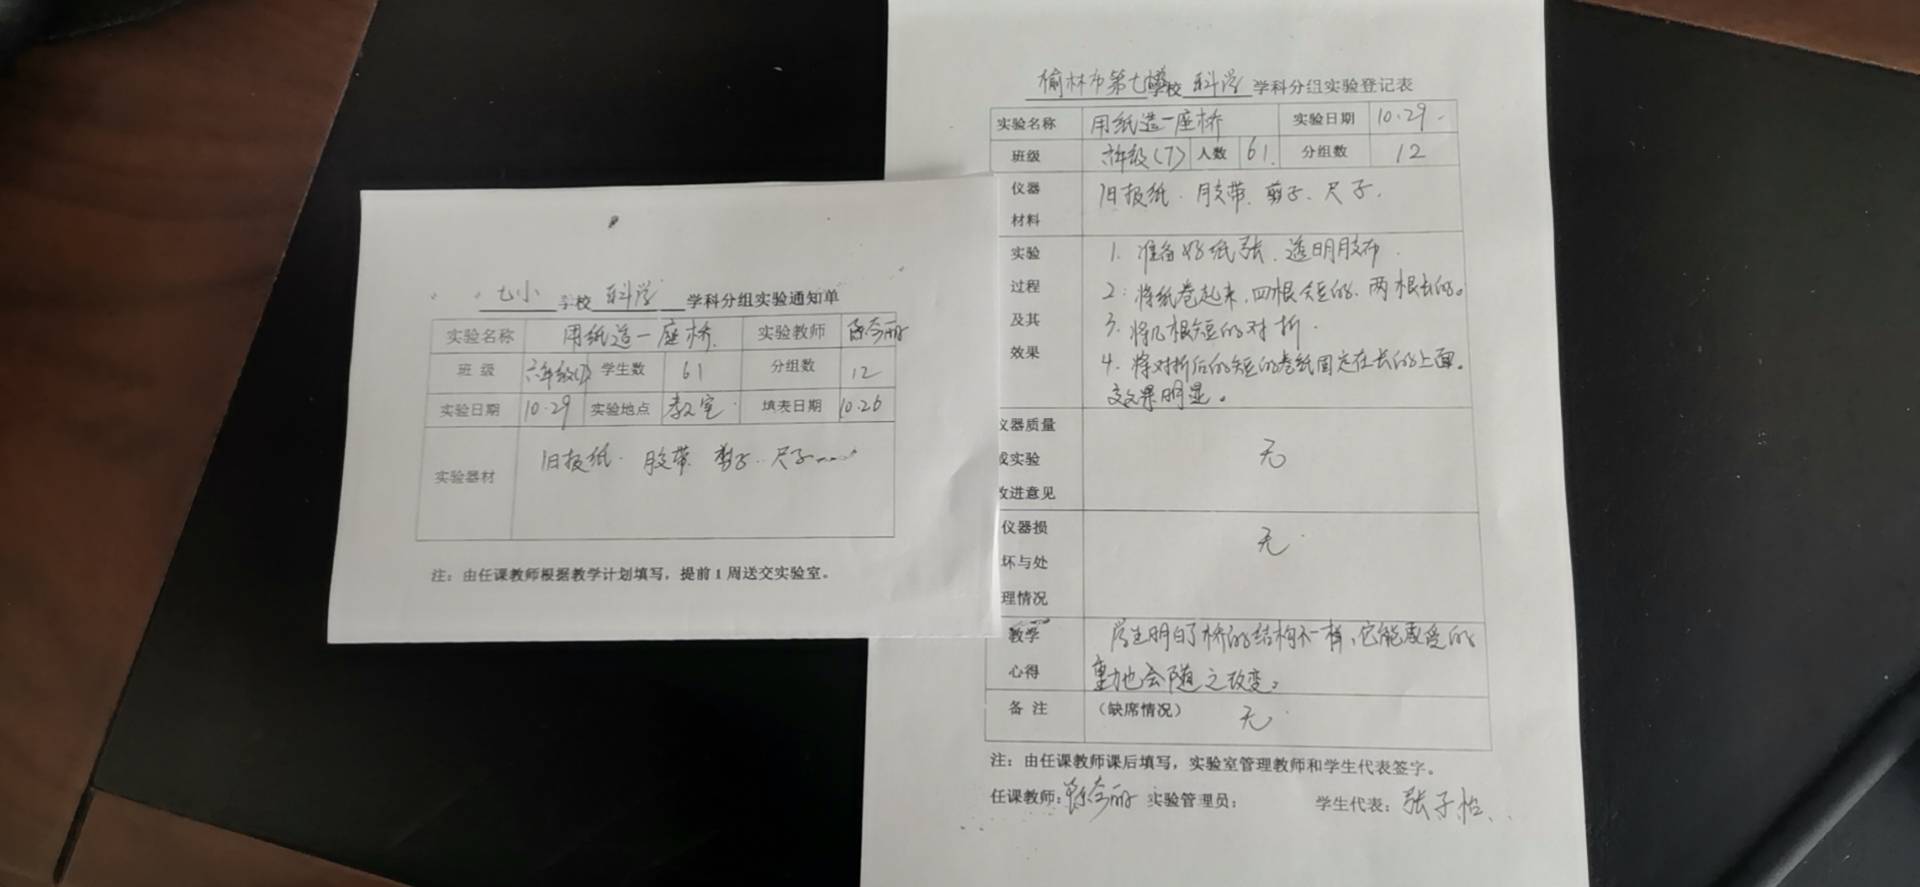 七小 学校 科学 学科分组实验通知单
实验名称 用纸造一座桥 实验教师
班级 六年级(7) 学生数 61 分组数 12
实验日期 10.29 实验地点 教室 填表日期 10.26
实验器材 旧报纸. 胶带. 剪子. 尺子……
注：由任课教师根据教学计划填写，提前1周送交实验室。
榆林市第七 学校 科学 学科分组实验登记表
实验名称 用纸造一座桥 实验日期 10.29
班级 六年级(7) 人数 61 分组数 12
仪器 旧报纸. 胶带. 剪子. 尺子.
材料
实验 1. 准备好纸张. 透明胶布.
过程 2. 将纸卷起来，四根短的. 两根长的。
及其 3. 将几根短的对折.
效果 4. 将对折后的短的卷纸固定在长的上面。
效果明显。
仪器质量
或实验 无
改进意见
仪器损 无
坏与处
理情况
教学 学生明白了桥的结构不一样，它能承受的
心得 重力也会随之改变。
备注 （缺席情况） 无
注：由任课教师课后填写，实验室管理教师和学生代表签字。
任课教师： 实验管理员： 学生代表：张子怡